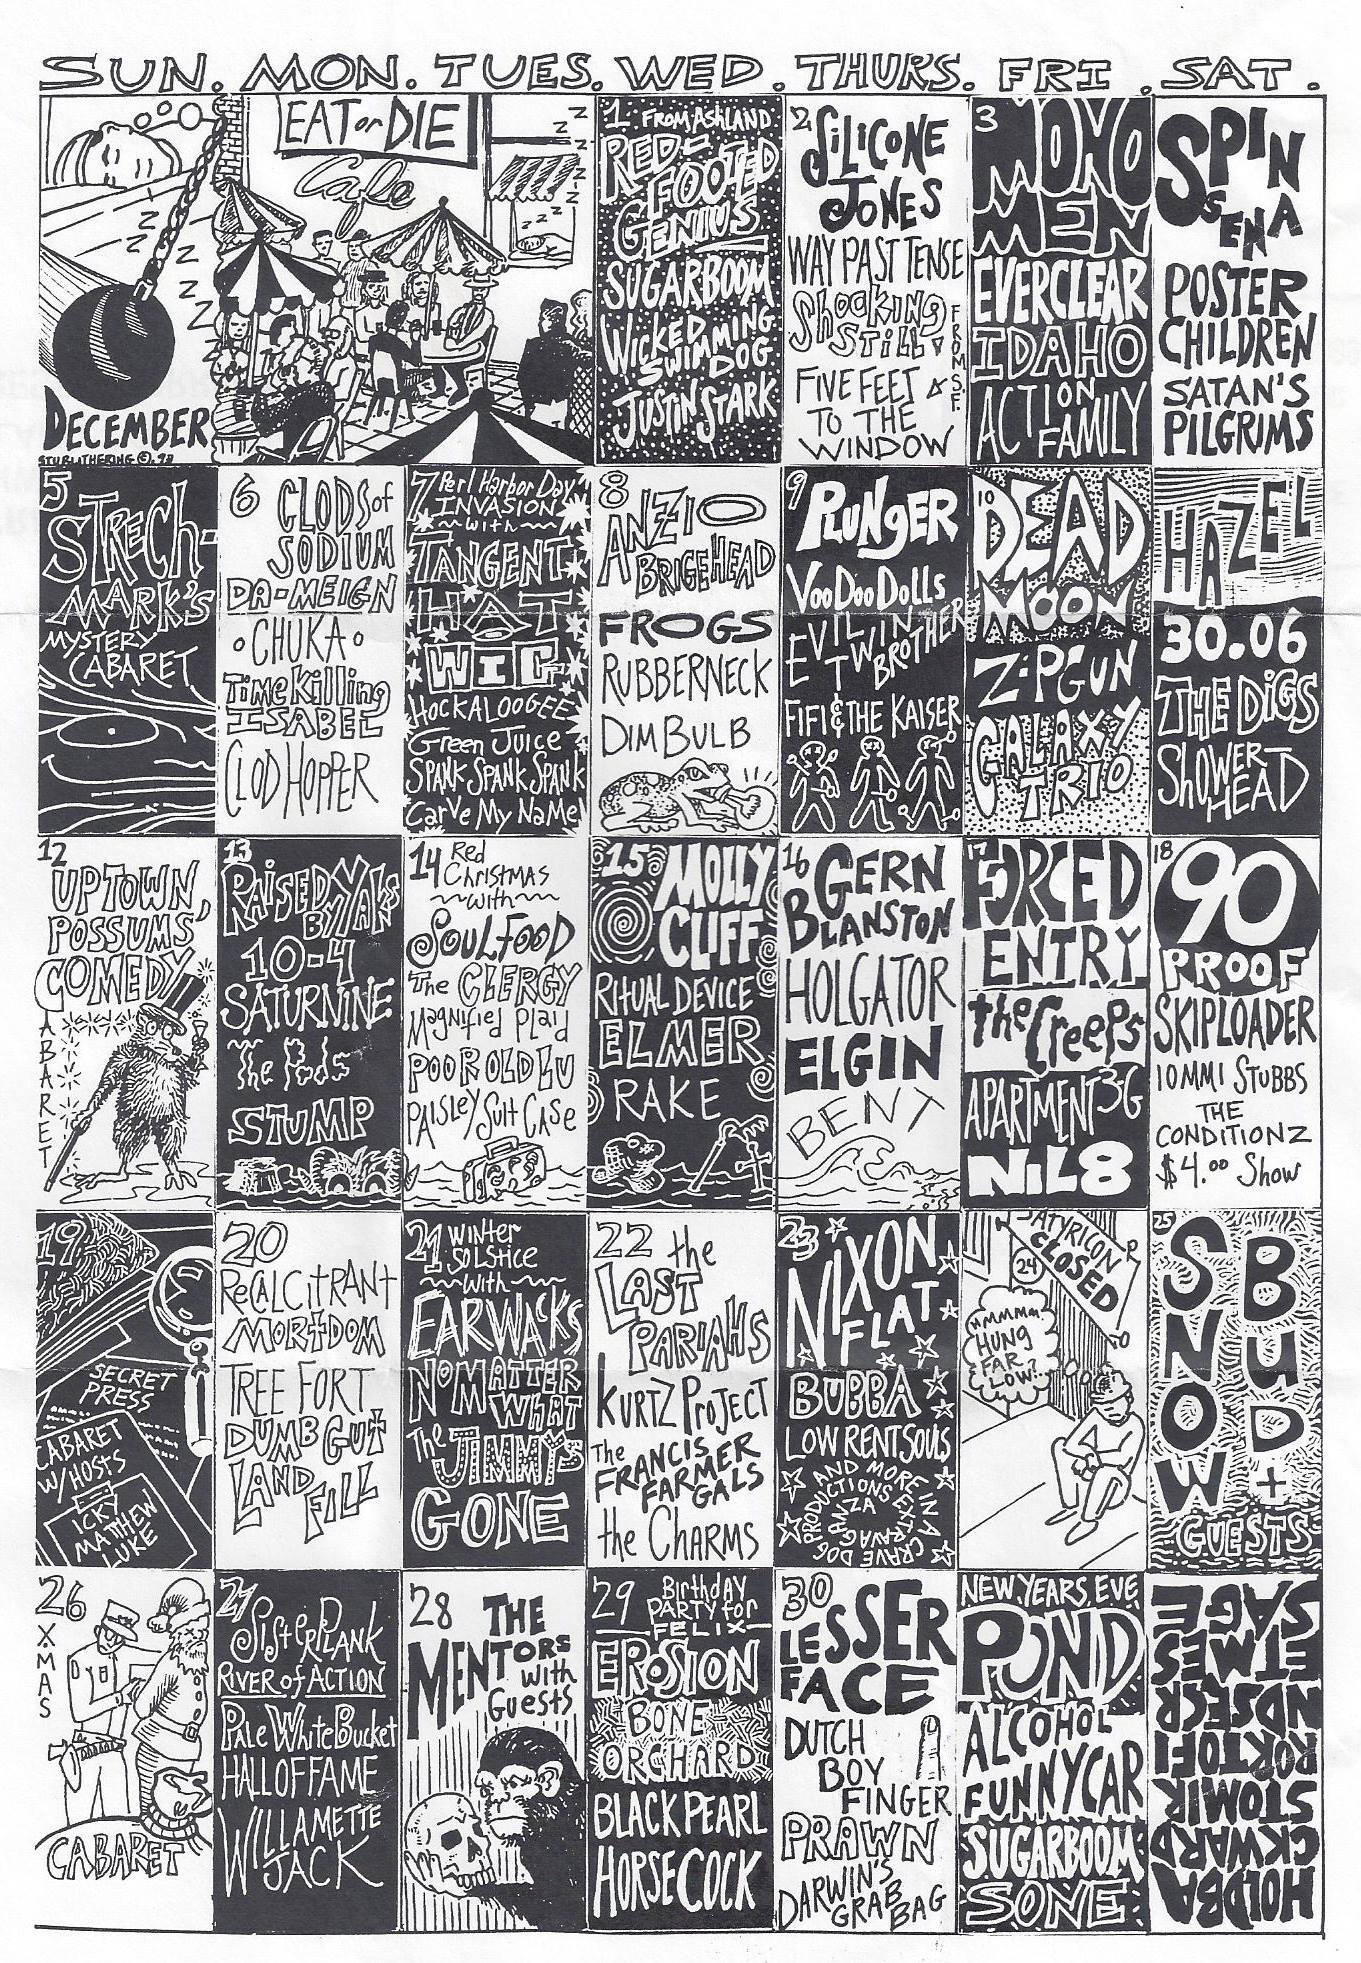 SUN. MON. TUES. WED. THURS. FRI. SAT.
EAT or DIE
Cafe
DECEMBER
1 FROM ASHLAND
RED-
FOOTED
GENIUS
SUGARBOOM
WICKED
SWIMMING
DOG
JUSTIN STARK
2 SILICONE
JONES
WAY PAST TENSE
Shocking
STILL!
FROM S.F.
FIVE FEET
TO THE
WINDOW
3 MONO
MEN
EVERCLEAR
IDAHO
ACTION
FAMILY
SPIN
SENA
POSTER
CHILDREN
SATAN'S
PILGRIMS
5 STRECH-
MARK'S
MYSTERY
CABARET
6 CLODS of
SODIUM
DA-MEIGN
CHUKA
Time Killing
ISABEL
CLOD HOPPER
7 Perl Harbor Day
INVASION
with
TANGENT
HAT
WIG
HOCKALOOGEE
Green Juice
SPANK SPANK SPANK
Carve My Name
8 ANZIO
BRIGEHEAD
FROGS
RUBBERNECK
DIM BULB
9 PLUNGER
VOODOO DOLLS
EVIL TWIN
BROTHER
FIFI & THE KAISER
10 DEAD
MOON
ZiPGUN
GALAXY
TRIO
HAZEL
30.06
THE DIGS
SHOWER
HEAD
12
UPTOWN,
POSSUMS
COMEDY
CABARET
13
RAISED
BY YAKS
10-4
SATURNINE
The Pods
STUMP
14 Red
Christmas
with
SOULFOOD
The CLERGY
Magnified Plaid
POOR OLD LU
PAISLEY SUIT CASE
15 MOLLY
CLIFF
RITUAL DEVICE
ELMER
RAKE
16 GERN
BLANSTON
HOLGATOR
ELGIN
BENT
17 FORCED
ENTRY
the Creeps
APARTMENT 3G
NIL8
18 90
PROOF
SKIPLOADER
IOMMI STUBBS
THE
CONDITIONZ
$4.00 Show
19
SECRET
PRESS
CABARET
W/HOSTS
ICKY
MATHEW
LUKE
20
ReCALCitRANt
MORtDOM
TREE FORT
DUMB GUT
LAND
FILL
21 WINTER
SOLSTICE
WITH
EARWACKS
NO MATTER
WHAT
The JIMMYS
GONE
22 the
LAST
PARIAHS
KURTZ PROJECT
The FRANCIS
FARMER
GALS
the CHARMS
23 NIXON
FLAT
BUBBA
LOW RENT SOULS
AND MORE IN A
CRAVE DOG
PRODUCTIONS EXTRAVAGANZA
SATYRICON
CLOSED
24
MMMMM..
HUNG
FAR
LOW..?
25 SNOW
BUD
+
GUESTS
26
X-MAS
CABARET
27
SISTER PLANK
RIVER OF ACTION
Pale White Bucket
HALL OF FAME
WILLAMETTE
JACK
28 THE
MENTORS
with
Guests
29 Birthday
PARTY for
FELIX
EROSION
BONE
ORCHARD
BLACK PEARL
HORSECOCK
30 LESSER
LESSER
FACE
DUTCH
BOY
FINGER
PRAWN
DARWIN'S
GRAB
BAG
NEW YEARS EVE
POND
ALCOHOL
FUNNYCAR
SUGARBOOM
SONE
HOLDBA
CKWARD
STOMIR
RORTOFI
NDSECR
ETMES
SAGE